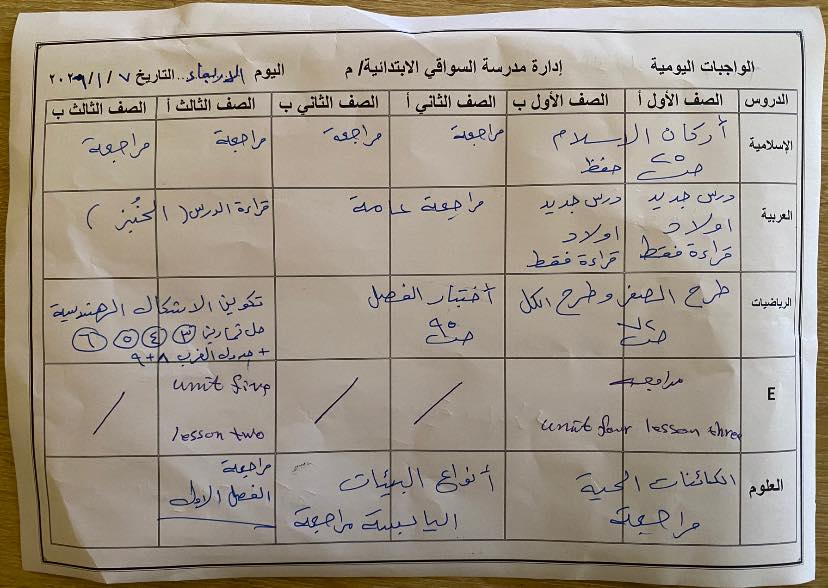 الواجبات اليومية إدارة مدرسة السواقي الابتدائية/ م اليوم الاربعاء التاريخ ٧ /١/ ٢٠٢٦
الدروس الصف الأول أ الصف الأول ب الصف الثاني أ الصف الثاني ب الصف الثالث أ الصف الثالث ب
الإسلامية
أركان الإسلام
ص ٢٥ حفظ
مراجعة
مراجعة
مراجعة
مراجعة
العربية
درس جديد
اولاد
قراءة فقط
درس جديد
اولاد
قراءة فقط
مراجعة عامة
قراءة الدرس ( الخُبز )
الرياضيات
طرح الصفر وطرح الكل
ص ٧٢
أختبار الفصل
ص ٩٥
تكوين الاشكال الهندسية
حل تمارين ٣ ٤ ٥ ٦
+ جدول الضرب ٨ + ٩
E
مراجعه
unit four lesson three
/
/
unit five
lesson two
/
العلوم
الكائنات الحية
مراجعة
أنواع البيئات
اليابسة مراجعة
مراجعة
الفصل الاول